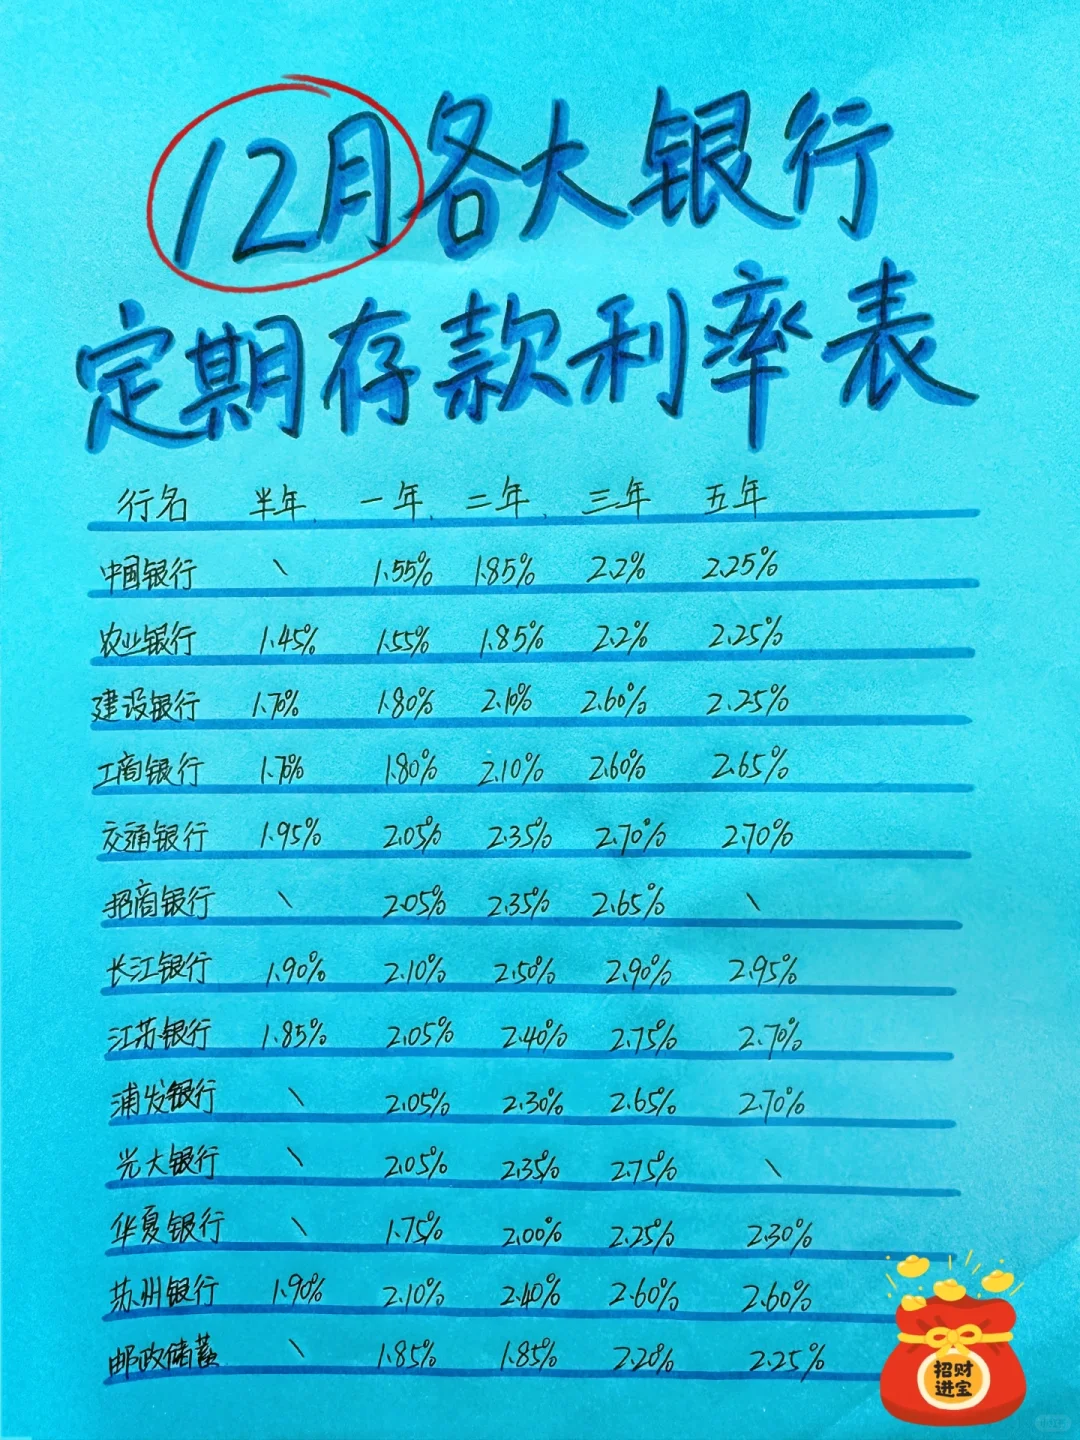 12月各大银行
定期存款利率表
行名 半年 一年 二年 三年 五年
中国银行 \ 1.55% 1.85% 2.2% 2.25%
农业银行 1.45% 1.55% 1.85% 2.2% 2.25%
建设银行 1.70% 1.80% 2.10% 2.60% 2.25%
工商银行 1.70% 1.80% 2.10% 2.60% 2.65%
交通银行 1.95% 2.05% 2.35% 2.70% 2.70%
招商银行 \ 2.05% 2.35% 2.65% \
长江银行 1.90% 2.10% 2.50% 2.90% 2.95%
江苏银行 1.85% 2.05% 2.40% 2.75% 2.70%
浦发银行 \ 2.05% 2.30% 2.65% 2.70%
光大银行 \ 2.05% 2.35% 2.75% \
华夏银行 \ 1.75% 2.00% 2.25% 2.30%
苏州银行 1.90% 2.10% 2.40% 2.60% 2.60%
邮政储蓄 \ 1.85% 1.85% 2.20% 2.25%
招财
进宝